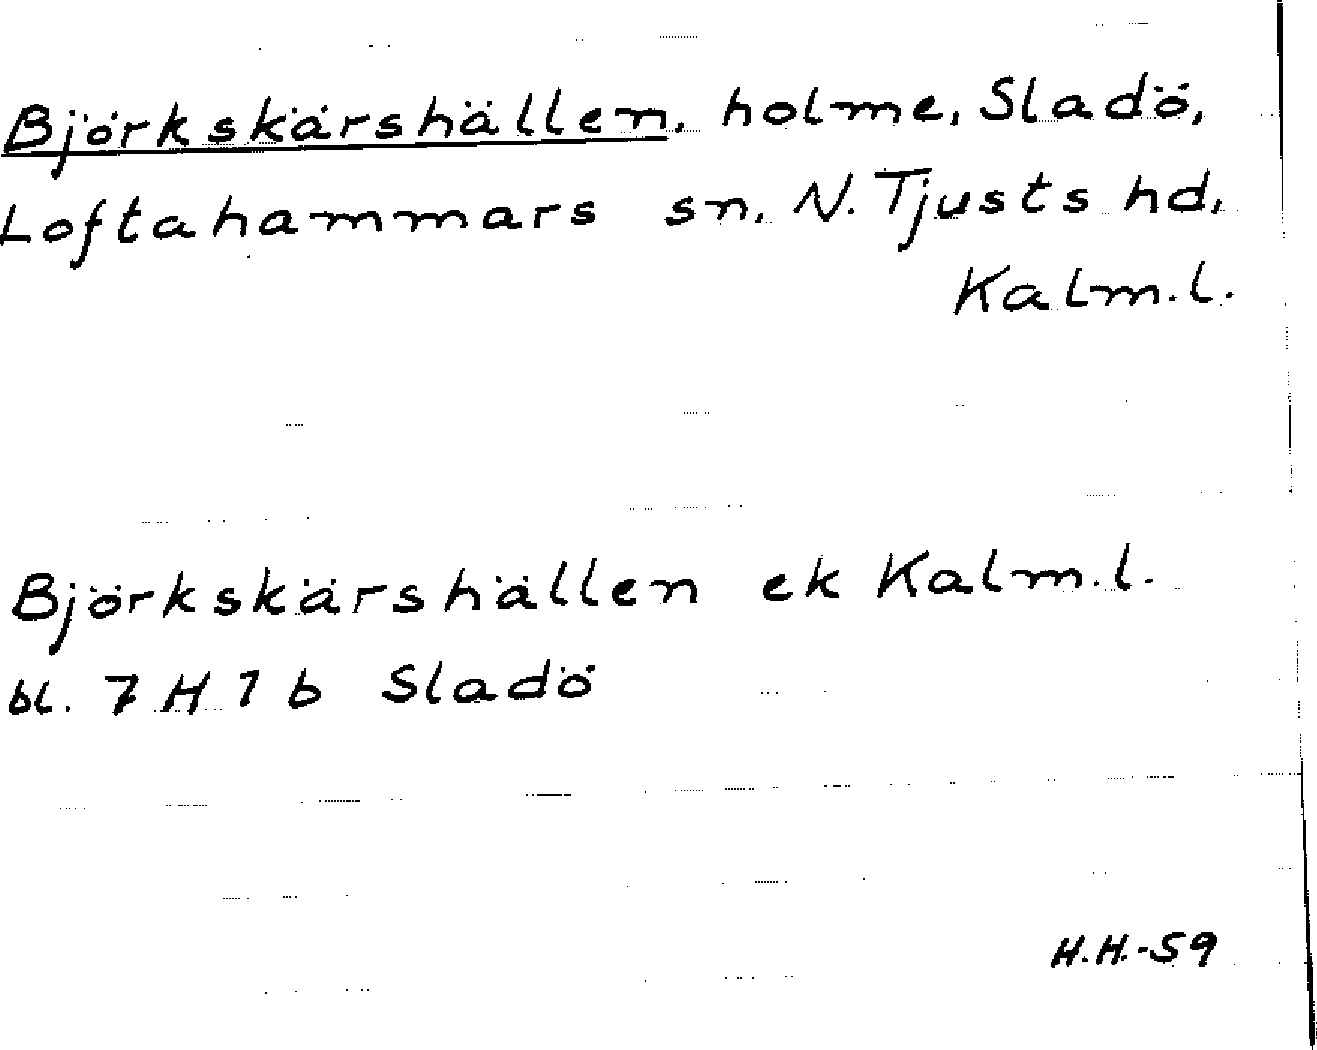 Björkskärshällen, holme, Sladö,
Loftahammars sn, N. Tjusts hd,
Kalm.l.
Björkskärshällen ek Kalm.l.
bl. 7 H 7 b Sladö
H.H.-59